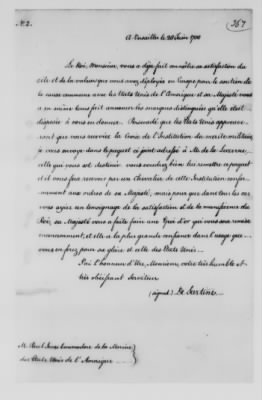 N.º 2.
367
A Versailles le 28 Juin 1780
Le Roi, Monsieur, vous a déja fait connoître sa satisfaction du
zèle et de la valeur que vous avez déployés en Europe pour le soutien de
la cause commune avec les Etats Unis de l'Amérique et sa Majesté vous
a en même tems fait annoncer les marques distinguées qu'elle étoit
disposée à vous en donner. Persuadé que les Etats Unis approuve-
ront que vous receviez la Croix de l'Institution du mérite militaire,
je vous envoye dans le paquet ci joint adressé à M. de la Luzerne,
celle qui vous est destinée. vous voudrez bien lui remettre ce paquet
et il vous fera recevoir par un Chevalier de cette Institution confor-
mément aux ordres de sa Majesté, mais pour que dans tous les cas
vous ayiez un témoignage de la satisfaction et de la munificence du
Roi, sa Majesté vous a faite faire une Epée d'or qui vous sera remise
et elle a la plus grande confiance dans l'usage que
vous en ferez pour sa gloire et celle des Etats Unis.
J'ai l'honneur d'être, Monsieur, votre très humble et
très obéissant Serviteur
(signé) De Sartine
M. Paul Jones Commodore de la Marine
des Etats Unis de l'Amérique